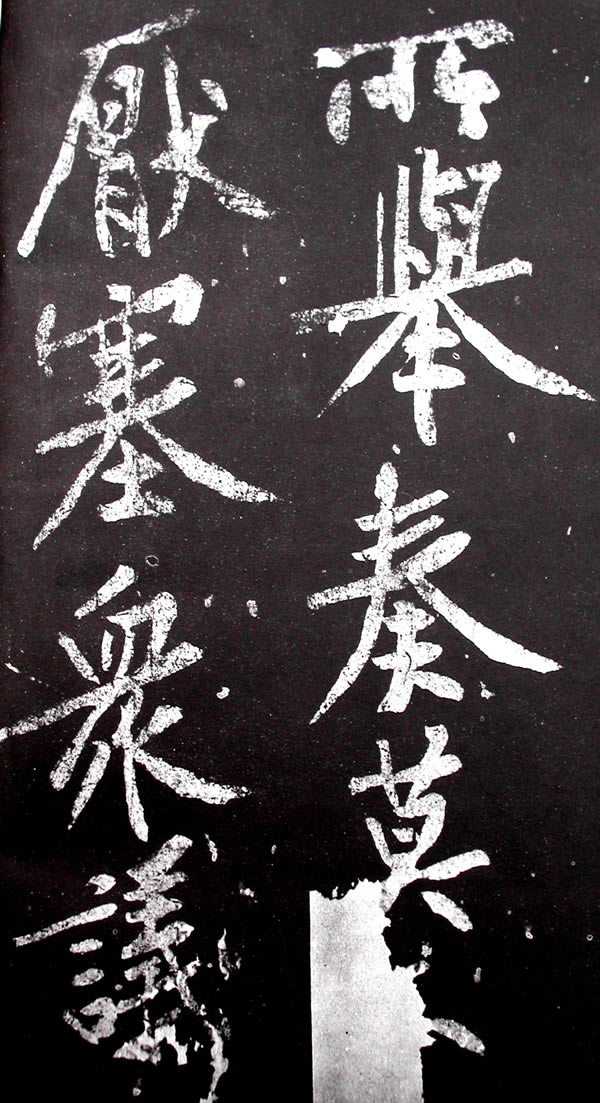 所舉奏莫
厭塞眾議